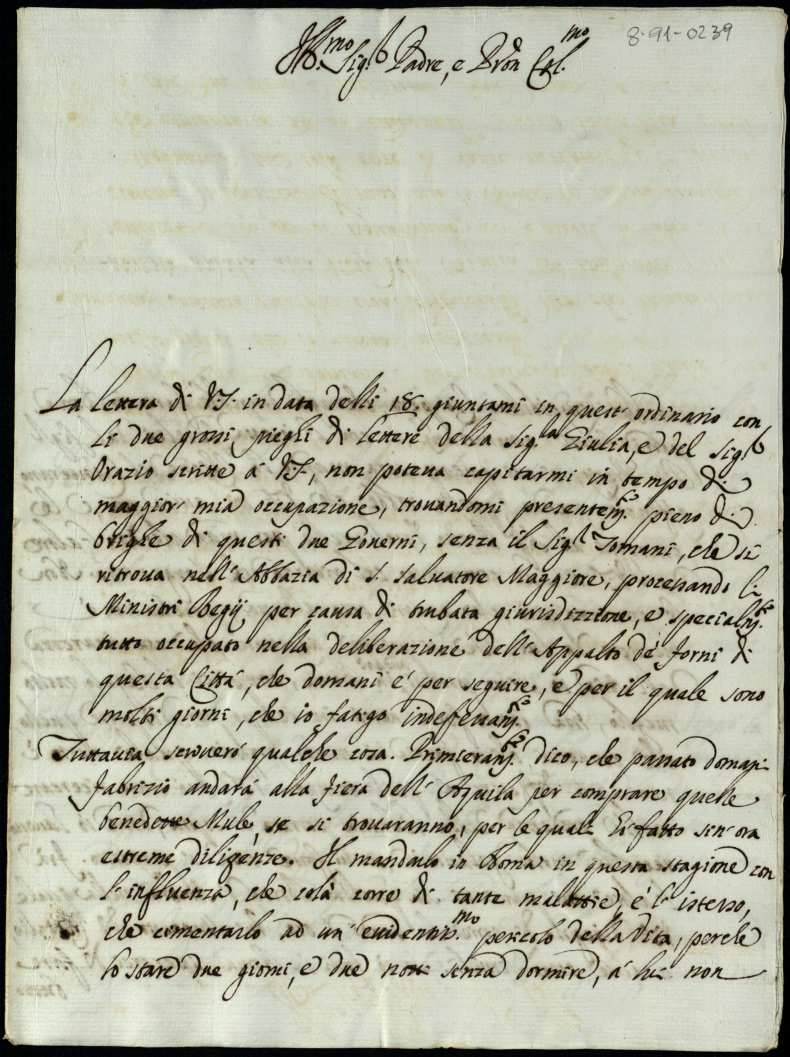 8-91-0239
Ill.mo Sig.r Padre, e Pron Col.mo
La lettera di VS. in data delli 18. giuntami in quest'ordinario con
li due grossi pieghi di lettere della Sig.ra Giulia, e del Sig.r
Orazio scritte à VS, non poteva capitarmi in tempo di
maggior mia occupazione, trovandomi presentem.te pieno di
brighe di questi due Governi, senza il Sig.r Tomani, che si
ritrova nell'Abbazia di S. Salvatore Maggiore, processando li
Ministri Regij per causa di turbata giurisdizzione, e specialm.te
tutto occupato nella deliberazione dell'Appalto de forni di
questa Città, che domani è per seguire, e per il quale sono
molti giorni, che io fatigo indefessam.te
Tuttavia scriverò qualche cosa. Primieram.te dico, che passato domani
Fabrizio andarà alla fiera dell'Aquila per comprare quelle
benedette Mule, se si trovaranno, per le quali hò fatto sin'ora
estreme diligenze. Il mandarlo in Roma in questa stagione con
l'influenza, che colà corre di tante malattie, è l'istesso,
che cimentarlo ad un'evidentiss.mo pericolo della Vita, perche
lo stare due giorni, e due notti senza dormire, à lui non